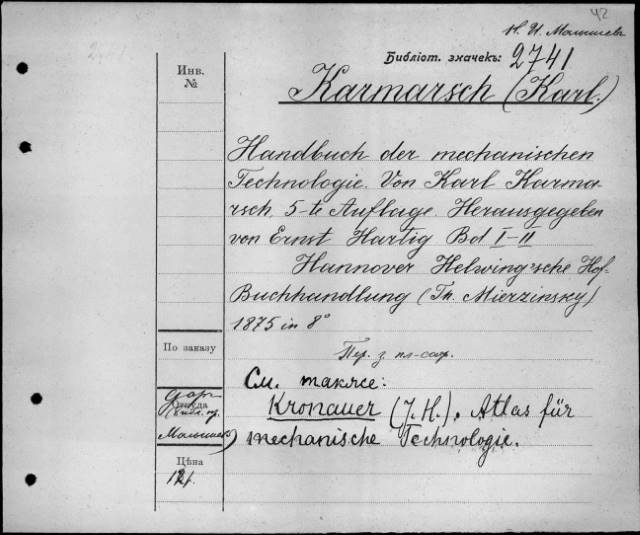 42
Н. И. Малышев
Библіот. значекъ: 2741
Инв.
№
Karmarsch (Karl.)
Handbuch der mechanischen
Technologie. Von Karl Karma-
rsch. 5-te Auflage. Herausgegeben
von Ernst Hartig Bd I-II
Hannover Helwing'sche Hof-
Buchhandlung (Th. Mierzinsky)
1875 in 8°
По заказу
Пер. з
См. также:
Kronauer (J. H.). Atlas für
mechanische Technologie.
Откуда
Цѣна